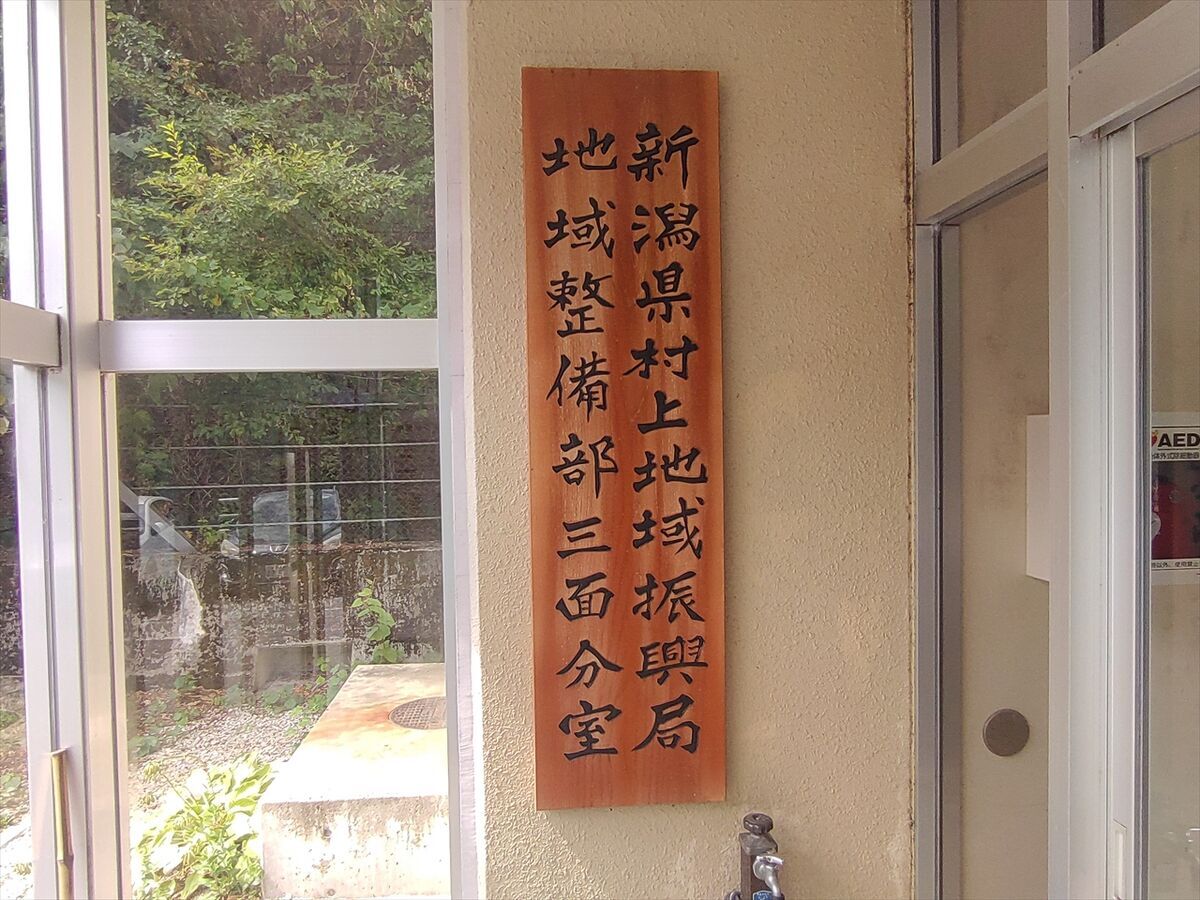 新潟県村上地域振興局
地域整備部三面分室
AED